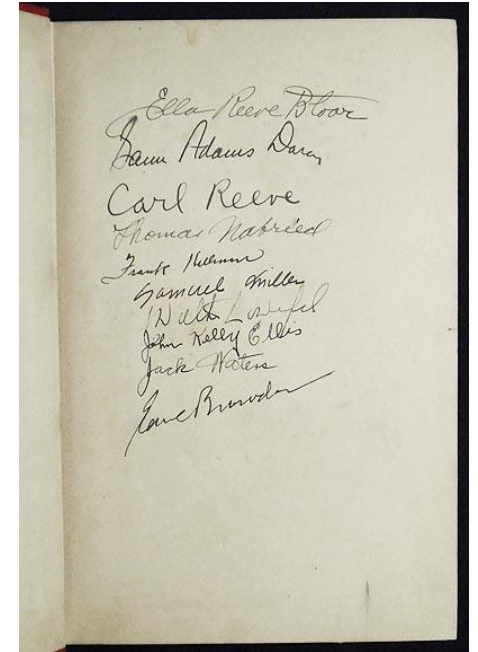 Ella Reeve Bloor
Sam Adams Darcy
Carl Reeve
Thomas Nabried
Frank
Samuel Miller
Walter Lowenfels
John Kelly Ellis
Jack Waters
Earl Browder